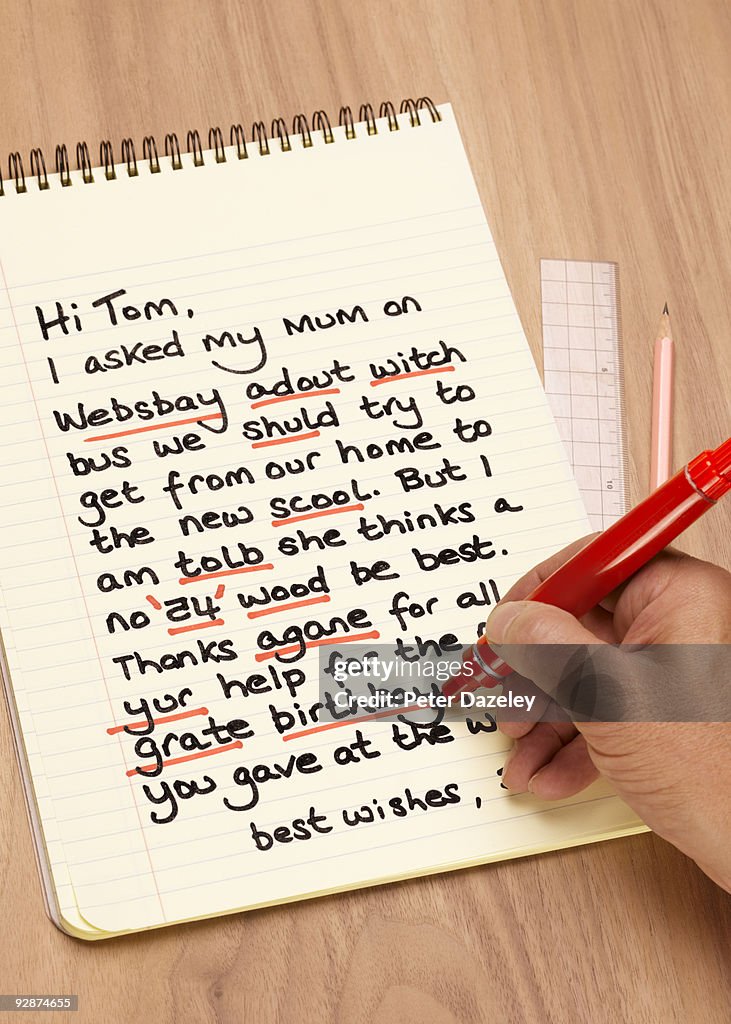 Hi Tom,
I asked my Mum on
Websbay adout witch
bus we shuld try to
get from our home to
the new scool. But I
am tolb she thinks a
no '24' wood be best.
Thanks agane for all
yur help for the
grate birthbey
you gave at the
best wishes,
gettyimages®
Credit: Peter Dazeley
92874655